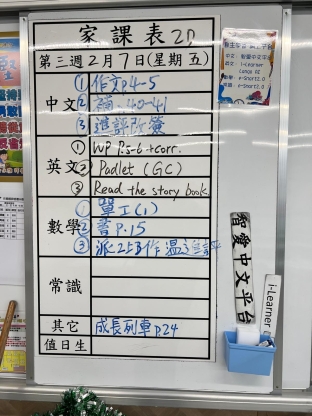 家課表 2D
第三週 2月7日(星期五)
中文
① 作文p4-5
② 補.40-41
③ 進評改簽
英文
① WP P.5-6 +corr.
② Padlet (GC)
③ Read the story book.
數學
① 單工(1)
② 書P.15
③ 派25B作
常識
其它
成長列車p.24
值日生
智愛中文平台
i-Learner
i-Learner